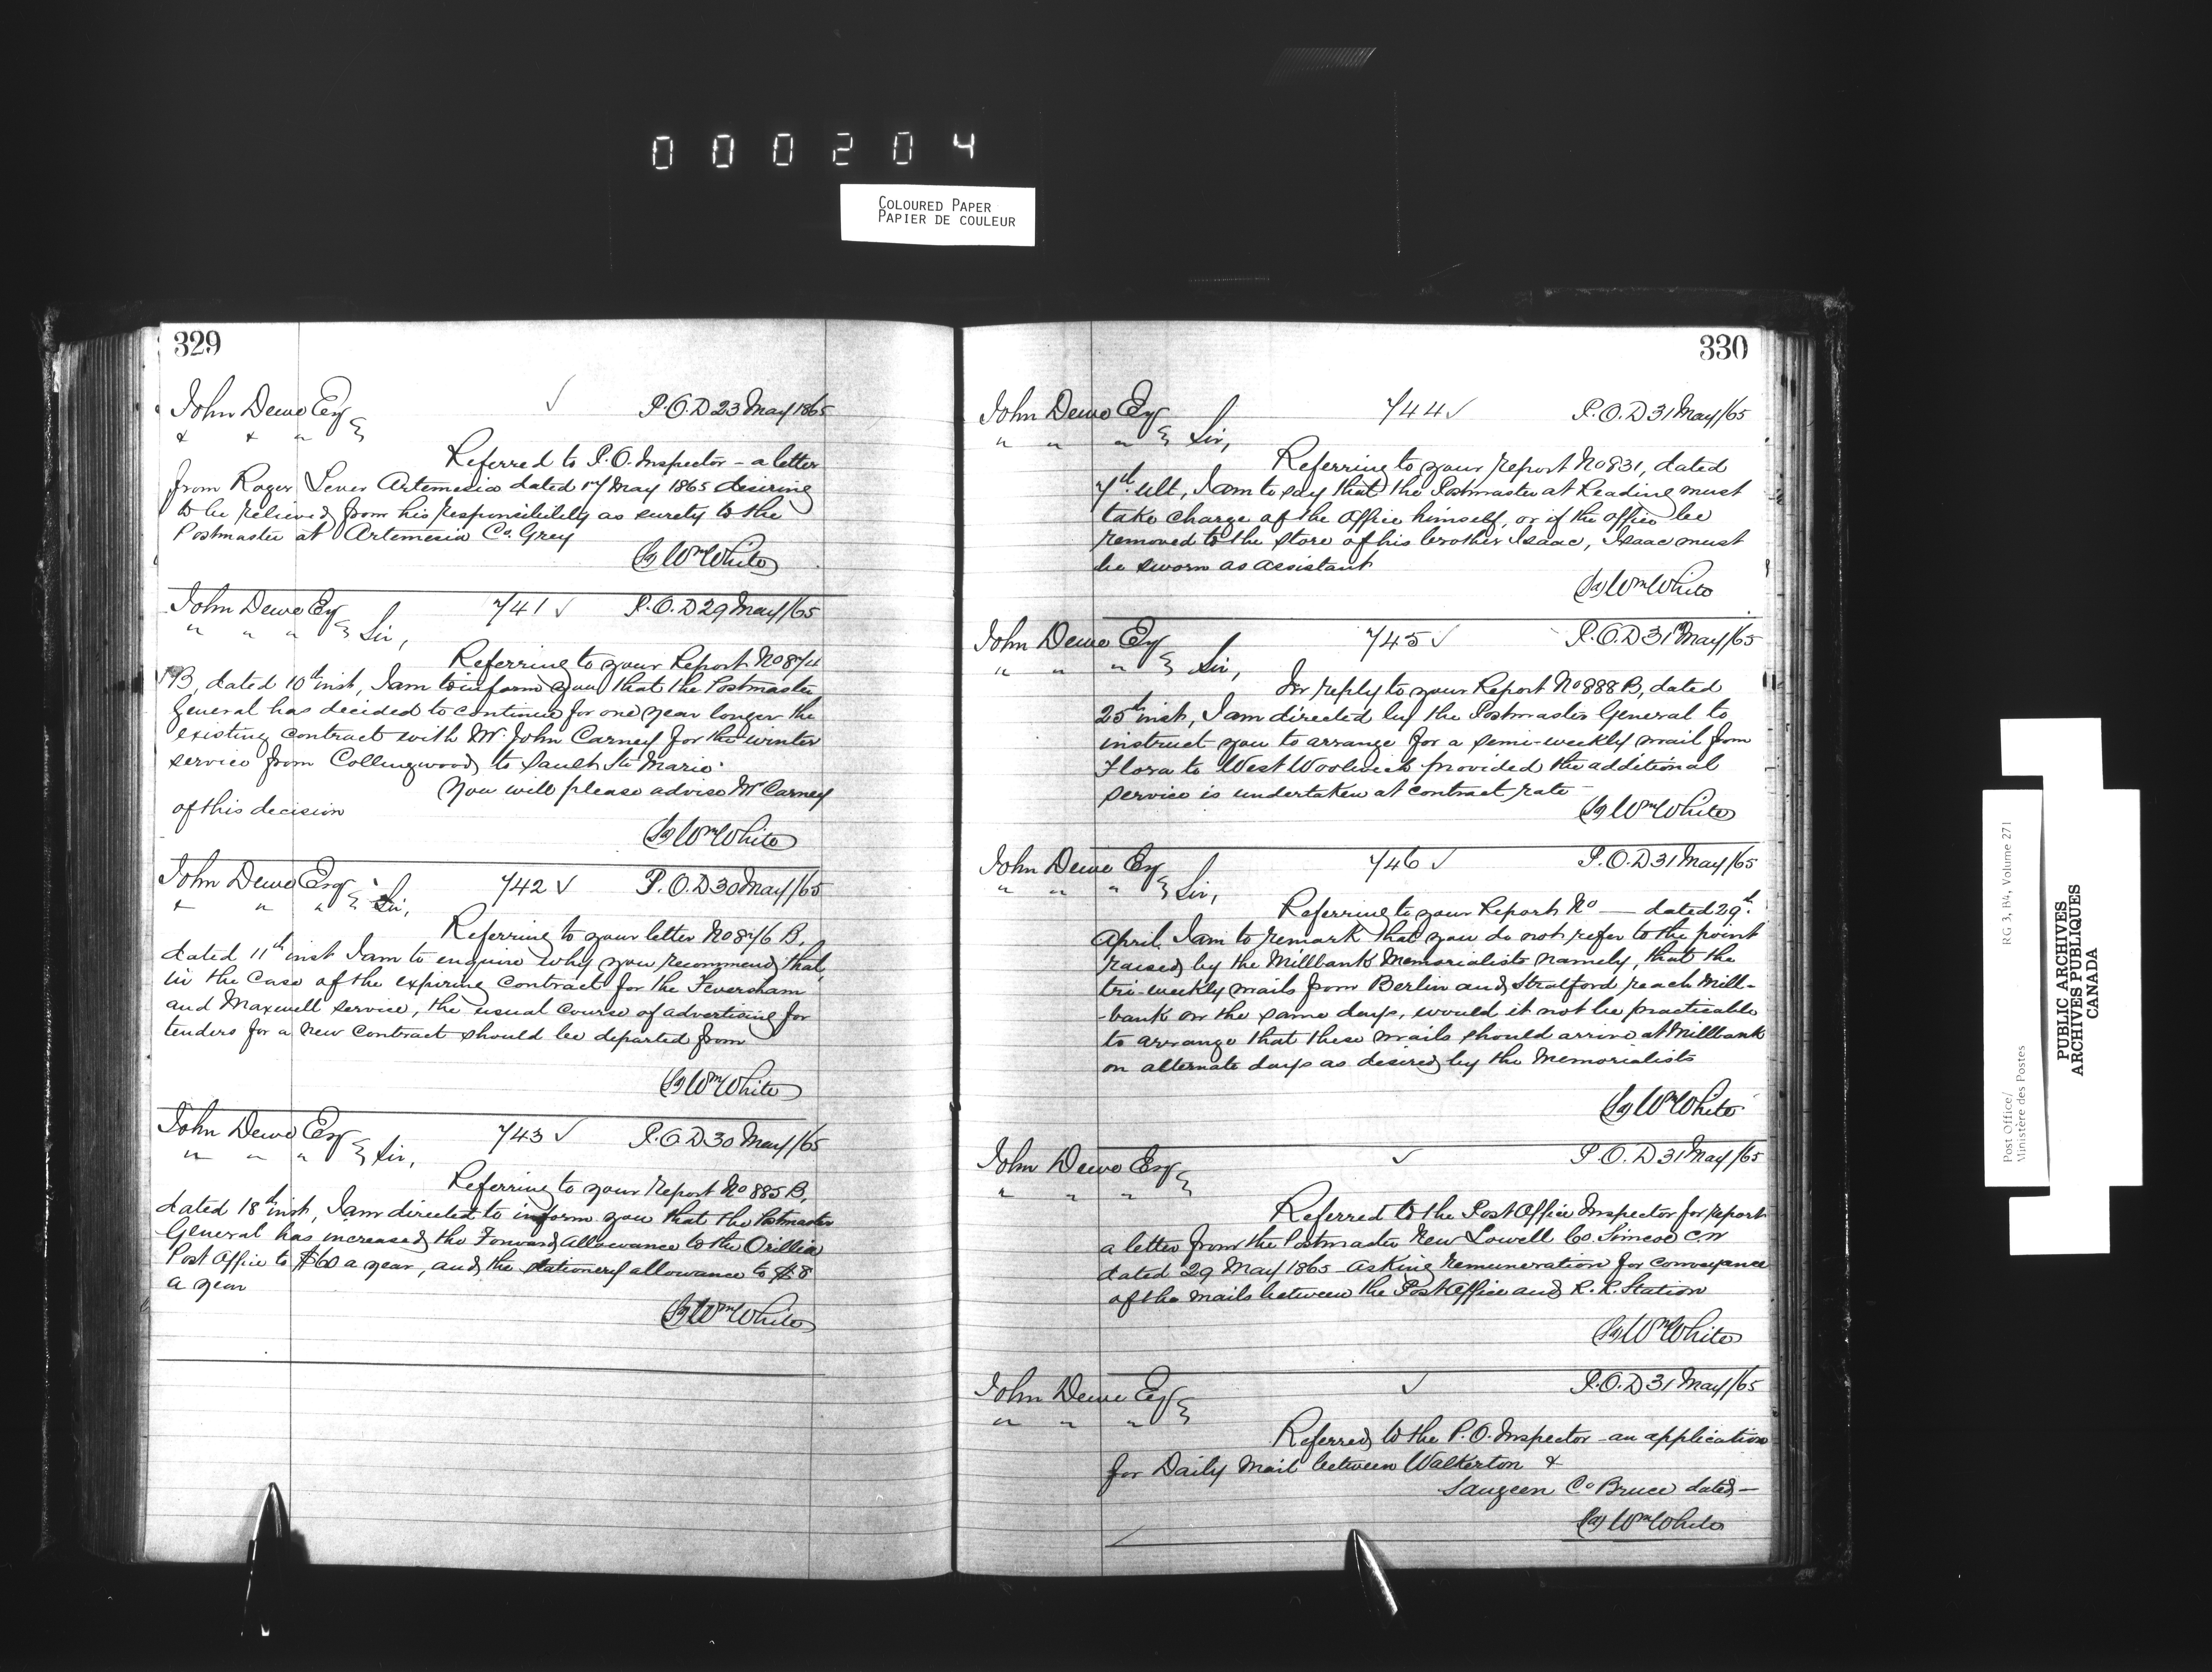 000204
COLOURED PAPER
PAPIER DE COULEUR
329
John Dewe Esq ✓ P.O.D 23 May 1865
" " "
Referred to P.O. Inspector – a letter
from Roger Lever Artemesia dated 17 May 1865 desiring
to be relieved from his responsibility as surety to the
Postmaster at Artemesia Co. Grey
(Sg) Wm White
John Dewe Esq 741 ✓ P.O.D 29 May/65
" " " Sir,
Referring to your Report No 874
B, dated 10th inst, I am to inform you that the Postmaster
General has decided to continue for one year longer the
existing contract with Mr John Carney for the winter
service from Collingwood to Sault Ste Marie.
You will please advise Mr Carney
of this decision
(Sg) Wm White
John Dewe Esq 742 ✓ P.O.D 30 May/65
" " " Sir,
Referring to your letter No 876 B.
dated 11th inst I am to enquire why you recommend that,
in the case of the expiring contract for the Feversham
and Maxwell service, the usual course of advertising for
tenders for a new contract should be departed from
(Sg) Wm White
John Dewe Esq 743 ✓ P.O.D 30 May/65
" " " Sir,
Referring to your report No 885 B,
dated 18th inst, I am directed to inform you that the Postmaster
General has increased the Forward allowance to the Orillia
Post Office to $60 a year, and the stationery allowance to $8
a year
(Sg) Wm White
330
John Dewe Esq 744 ✓ P.O.D 31 May/65
" " " Sir,
Referring to your report No 831, dated
7th ult, I am to say that the Postmaster at Reading must
take charge of the Office himself, or if the office be
removed to the store of his brother Isaac, Isaac must
be sworn as assistant
(Sg) Wm White
John Dewe Esq 745 ✓ P.O.D 31 May/65
" " " Sir,
In reply to your Report No 888 B, dated
25th inst, I am directed by the Postmaster General to
instruct you to arrange for a semi-weekly mail from
Flora to West Woolwich provided the additional
service is undertaken at contract rate
(Sg) Wm White
John Dewe Esq 746 ✓ P.O.D 31 May/65
" " " Sir,
Referring to your Report No — dated 29th
April I am to remark that you do not refer to the point
raised by the Millbank Memorialists namely, that the
tri-weekly mails from Berlin and Stratford reach Mill-
-bank on the same days, would it not be practicable
to arrange that these mails should arrive at Millbank
on alternate days as desired by the Memorialists
(Sg) Wm White
John Dewe Esq ✓ P.O.D 31 May/65
" " "
Referred to the Post Office Inspector for report
a letter from the Postmaster New Lowell Co. Simcoe C.W
dated 29 May 1865 asking remuneration for conveyance
of the mails between the Post Office and R.R. Station
(Sg) Wm White
John Dewe Esq ✓ P.O.D 31 May/65
" " "
Referred to the P.O. Inspector an application
for Daily Mail between Walkerton &
Saugeen Co Bruce dated —
(Sg) Wm White
Post Office/
Ministère des Postes
RG 3, B4, Volume 271
PUBLIC ARCHIVES
ARCHIVES PUBLIQUES
CANADA